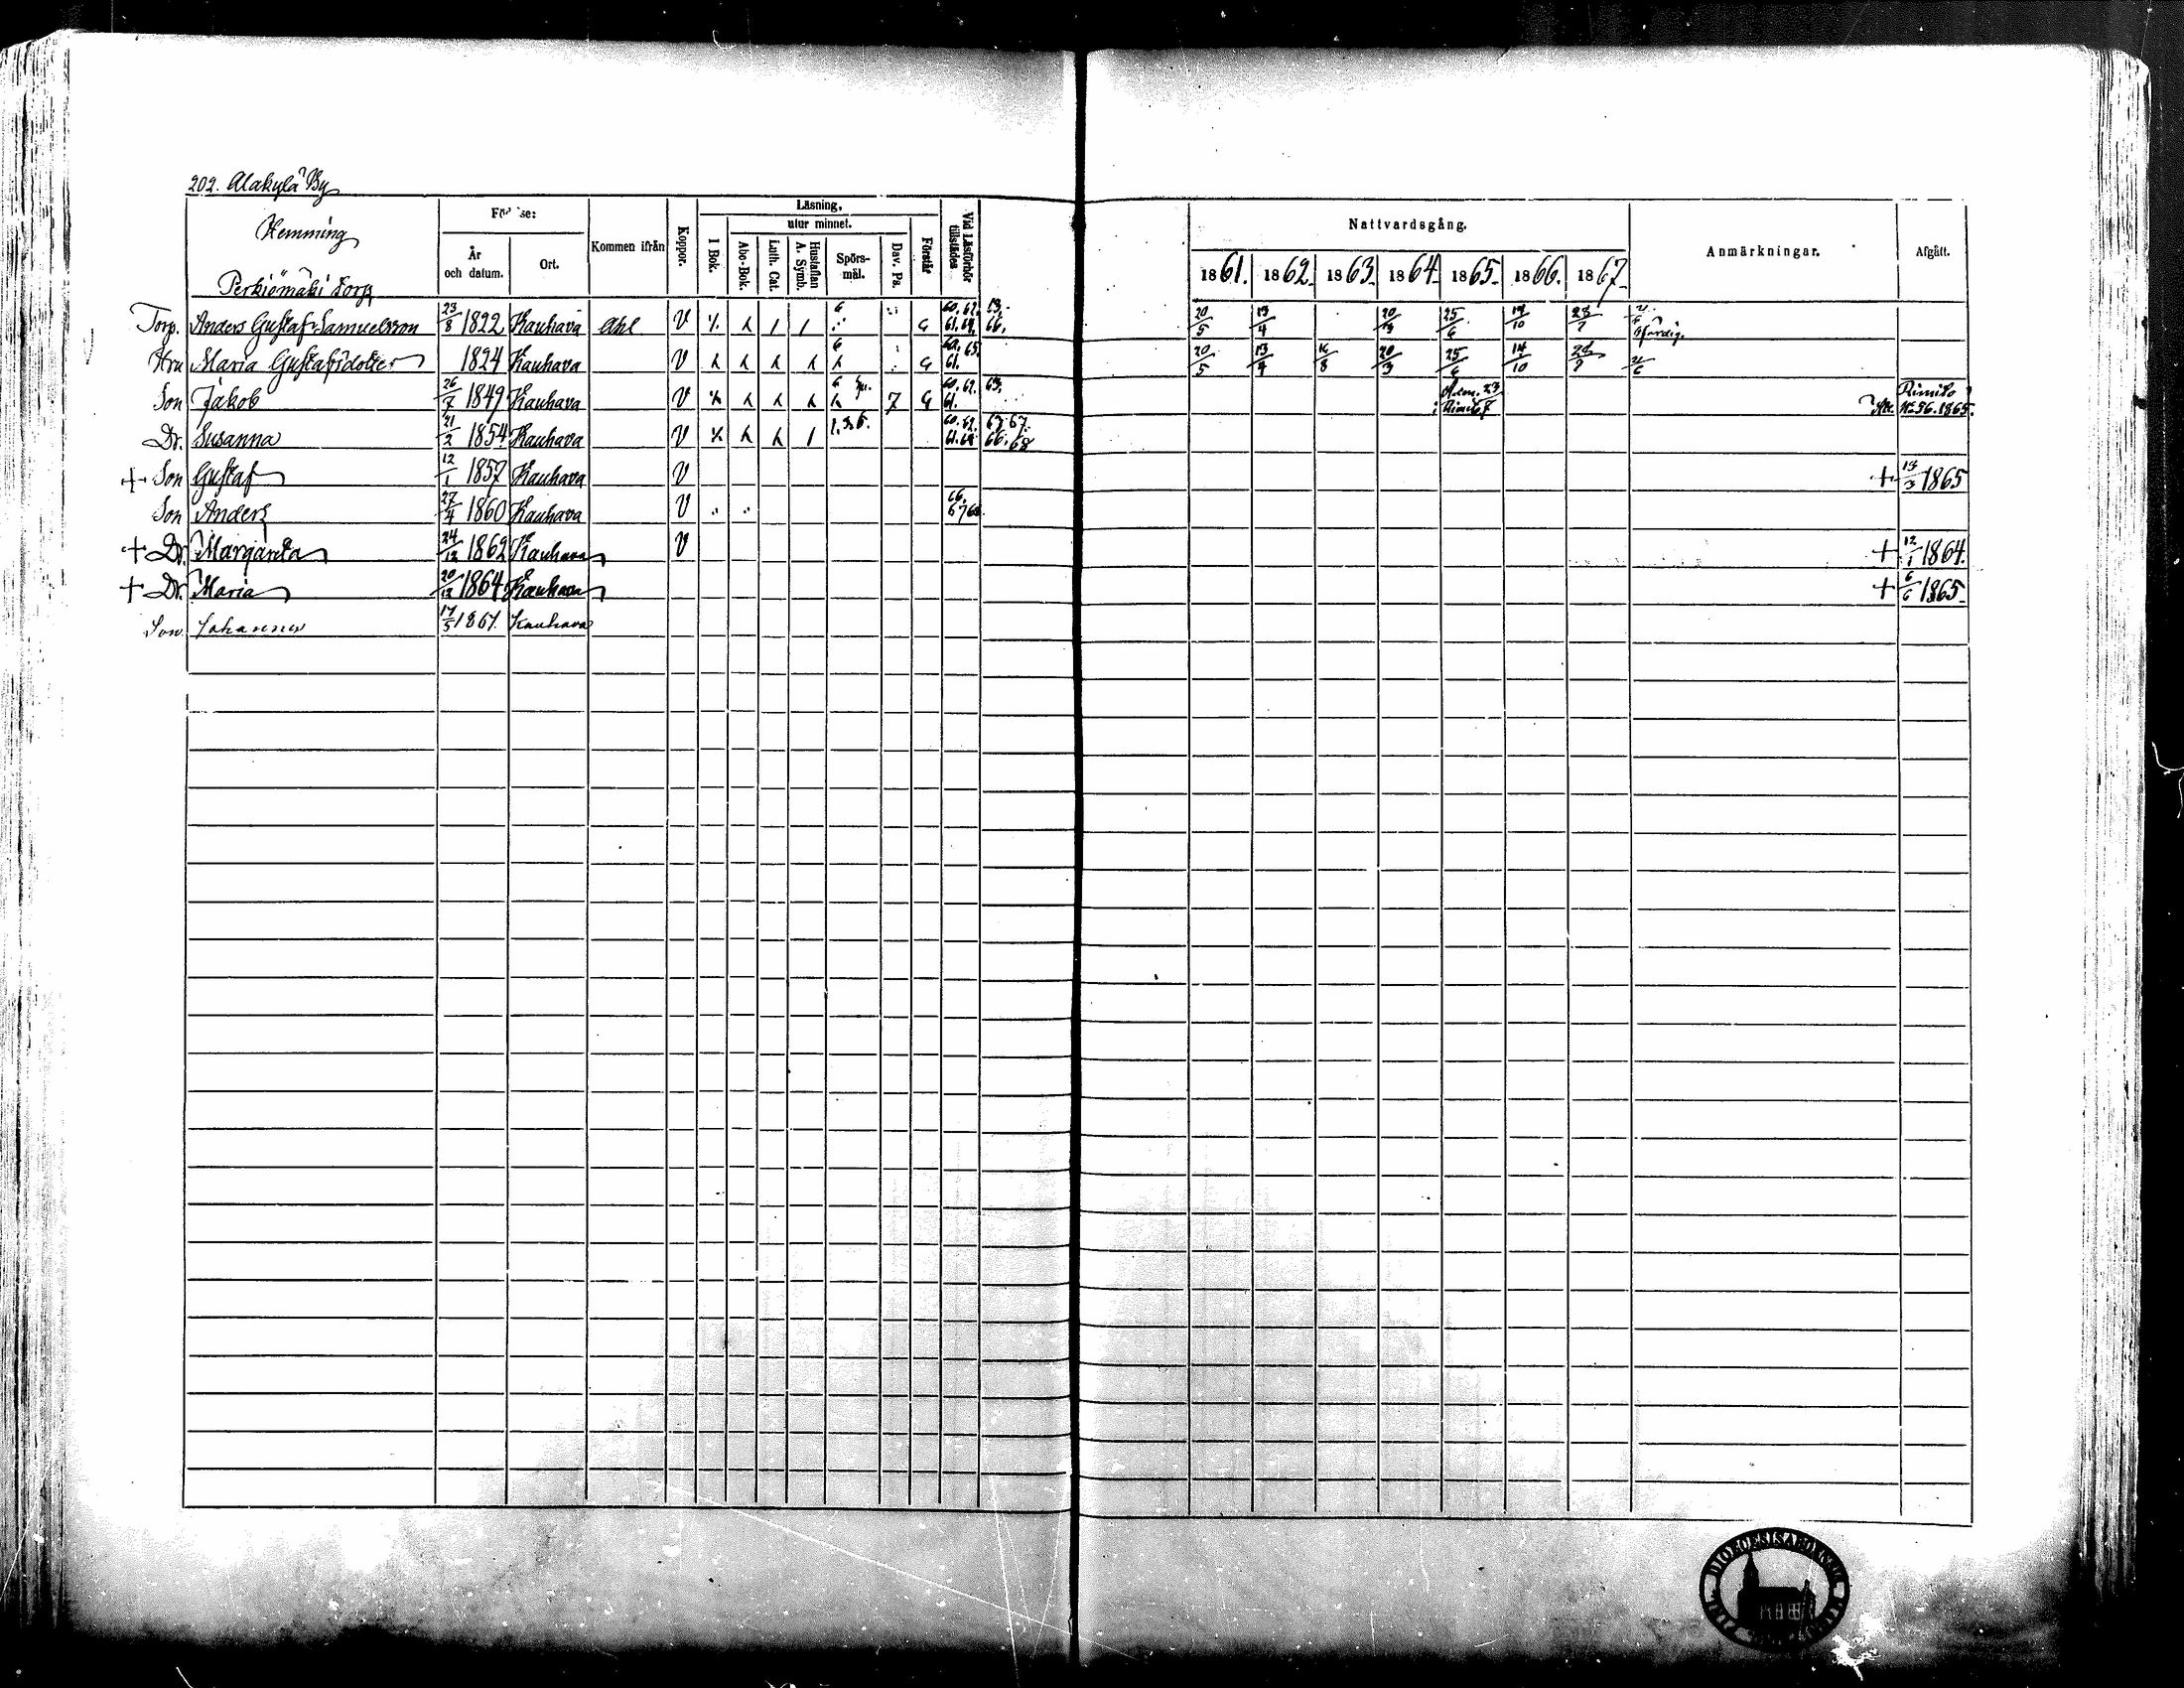 202. Alakylä By
Hemming
Perkiömäki Torp
Födelse:
År och datum.
Ort.
Kommen ifrån
Koppor.
Läsning,
I Bok.
utur minnet.
Abc-Bok.
Luth. Cat.
Hustaflan A. Symb.
Spörs-mål.
Dav. Ps.
Förstår
Vid Läsförhör tillstädes
Nattvardsgång.
1861. 1862. 1863. 1864. 1865. 1866. 1867.
Anmärkningar.
Afgått.
Torp. Anders Gustaf Samuelsson 23/8 1822 Kauhava V G 60. 62. 63. 61. 64. 66. 20/5 13/4 20/3 25/6 14/10 28/7
Hru Maria Gustafsdotter 1824 Kauhava V G 61. 65. 20/5 13/4 16/8 20/3 25/6 14/10 28/7
Son Jakob 26/7 1849 Kauhava V 7 G 60. 62. 63. 61. Rimito No 56. 1865.
Dr. Susanna 21/2 1854 Kauhava V 60. 62. 67. 61. 64. 66. 68
+ Son Gustaf 12/1 1857 Kauhava V + 13/3 1865
Son Anders 27/4 1860 Kauhava V 66. 67 68.
+ Dr. Margareta 24/12 1862 Kauhava V + 12/1 1864.
+ Dr. Maria 20/12 1864 Kauhava + 6/6 1865.
Son Johannes 17/5 1867. Kauhava